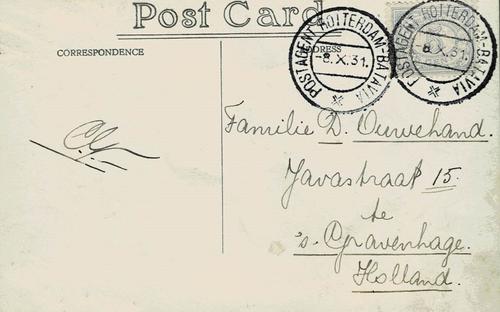 Post Card
CORRESPONDENCE
ADDRESS
POSTAGENT ROTTERDAM-BATAVIA
-8.X.31.
POSTAGENT ROTTERDAM-BATAVIA
-8.X.31.
Familie D. Ouwehand.
Javastraat 15.
te
's-Gravenhage.
Holland.